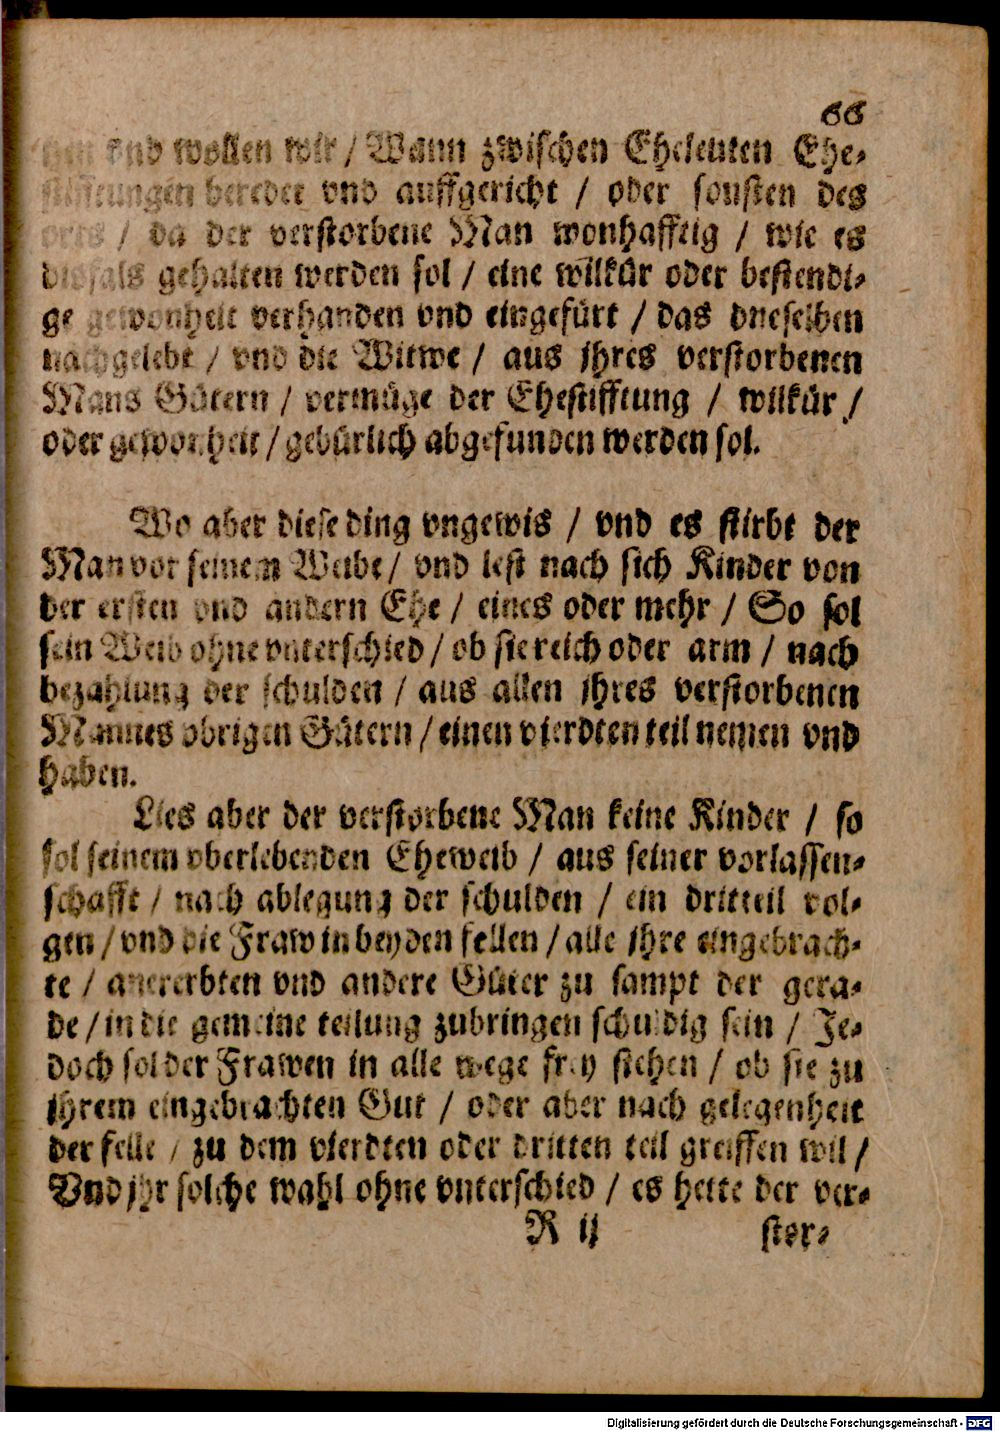 66
vnd wollen wir / Wann zwischen Eheleuten Ehe-
stifftungen beredet vnd auffgericht / oder sonsten des
orts / da der verstorbene Man wonhafftig / wie es
disfals gehalten werden sol / eine wilkür oder bestendi-
ge gewonheit verhanden vnd eingefürt / das dneselben
nachgelebt / vnd die Witwe / aus ihres verstorbenen
Mans Gütern / vermüge der Ehestifftung / wilkür /
oder gewonheit / gebürlich abgefunden werden sol.
Wo aber diese ding vngewis / vnd es stirbt der
Man vor seinem Weibe / vnd lest nach sich Kinder von
der ersten vnd andern Ehe / eines oder mehr / So sol
sein Weib ohne vnterschied / ob sie reich oder arm / nach
bezahlung der schulden / aus allen ihres verstorbenen
Mannes vbrigen Gütern / einen vierdten teil nemen vnd
haben.
Lies aber der verstorbene Man keine Kinder / so
sol seinem vberlebenden Eheweib / aus seiner vorlassen-
schafft / nach ablegung der schulden / ein dritteil vol-
gen / vnd die Fraw in beyden fellen / alle ihre eingebrach-
te / anererbten vnd andere Güter zu sampt der gera-
de / in die gemeine teilung zubringen schuldig sein / Je-
doch sol der Frawen in alle wege frey stehen / ob sie zu
ihrem eingebrachten Gut / oder aber nach gelegenheit
der felle / zu dem vierdten oder dritten teil greiffen wil /
Vnd jhr solche wahl ohne vnterschied / es hette der ver-
R ij stor-
Digitalisierung gefördert durch die Deutsche Forschungsgemeinschaft - DFG